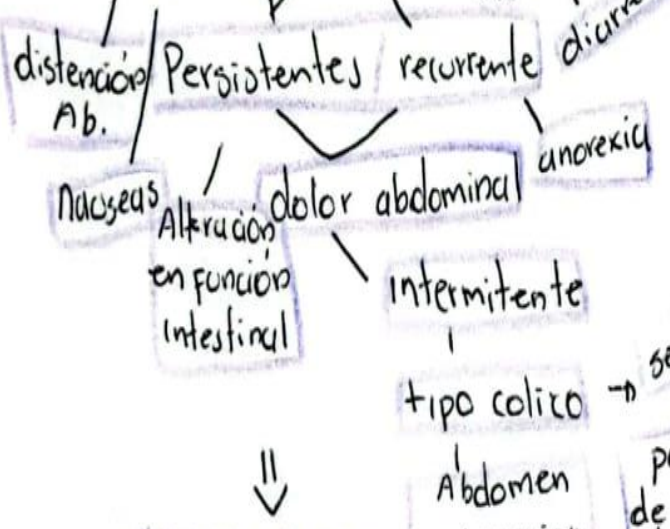 distención
Ab.
Persistentes
recurrente
nauseas
Alteración
en función
intestinal
dolor abdominal
anorexia
intermitente
tipo colico →
Abdomen
de